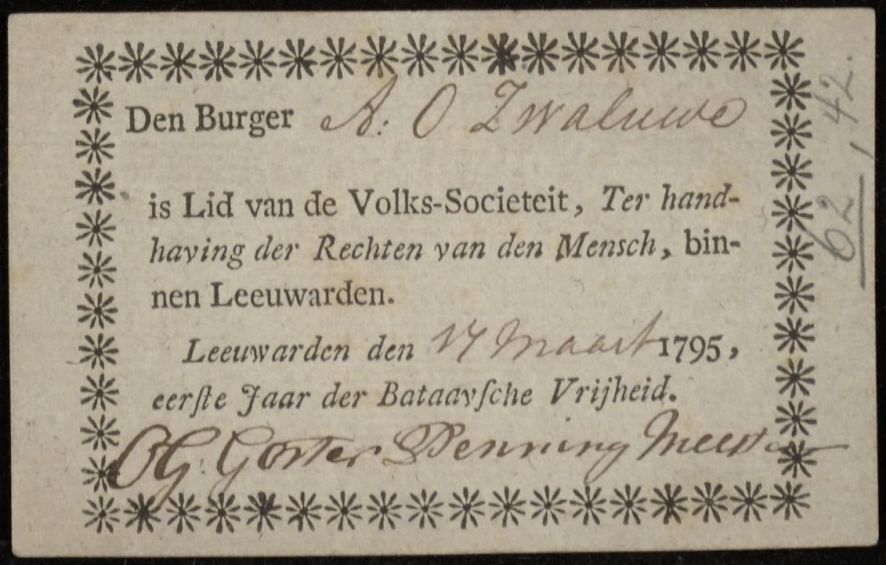 Den Burger A: O Zwaluwe
is Lid van de Volks-Societeit, Ter hand-
having der Rechten van den Mensch, bin-
nen Leeuwarden.
Leeuwarden den 17 Maart 1795,
eerſte Jaar der Bataavſche Vrijheid.
OG: Gorter Penning Meester
62,42.